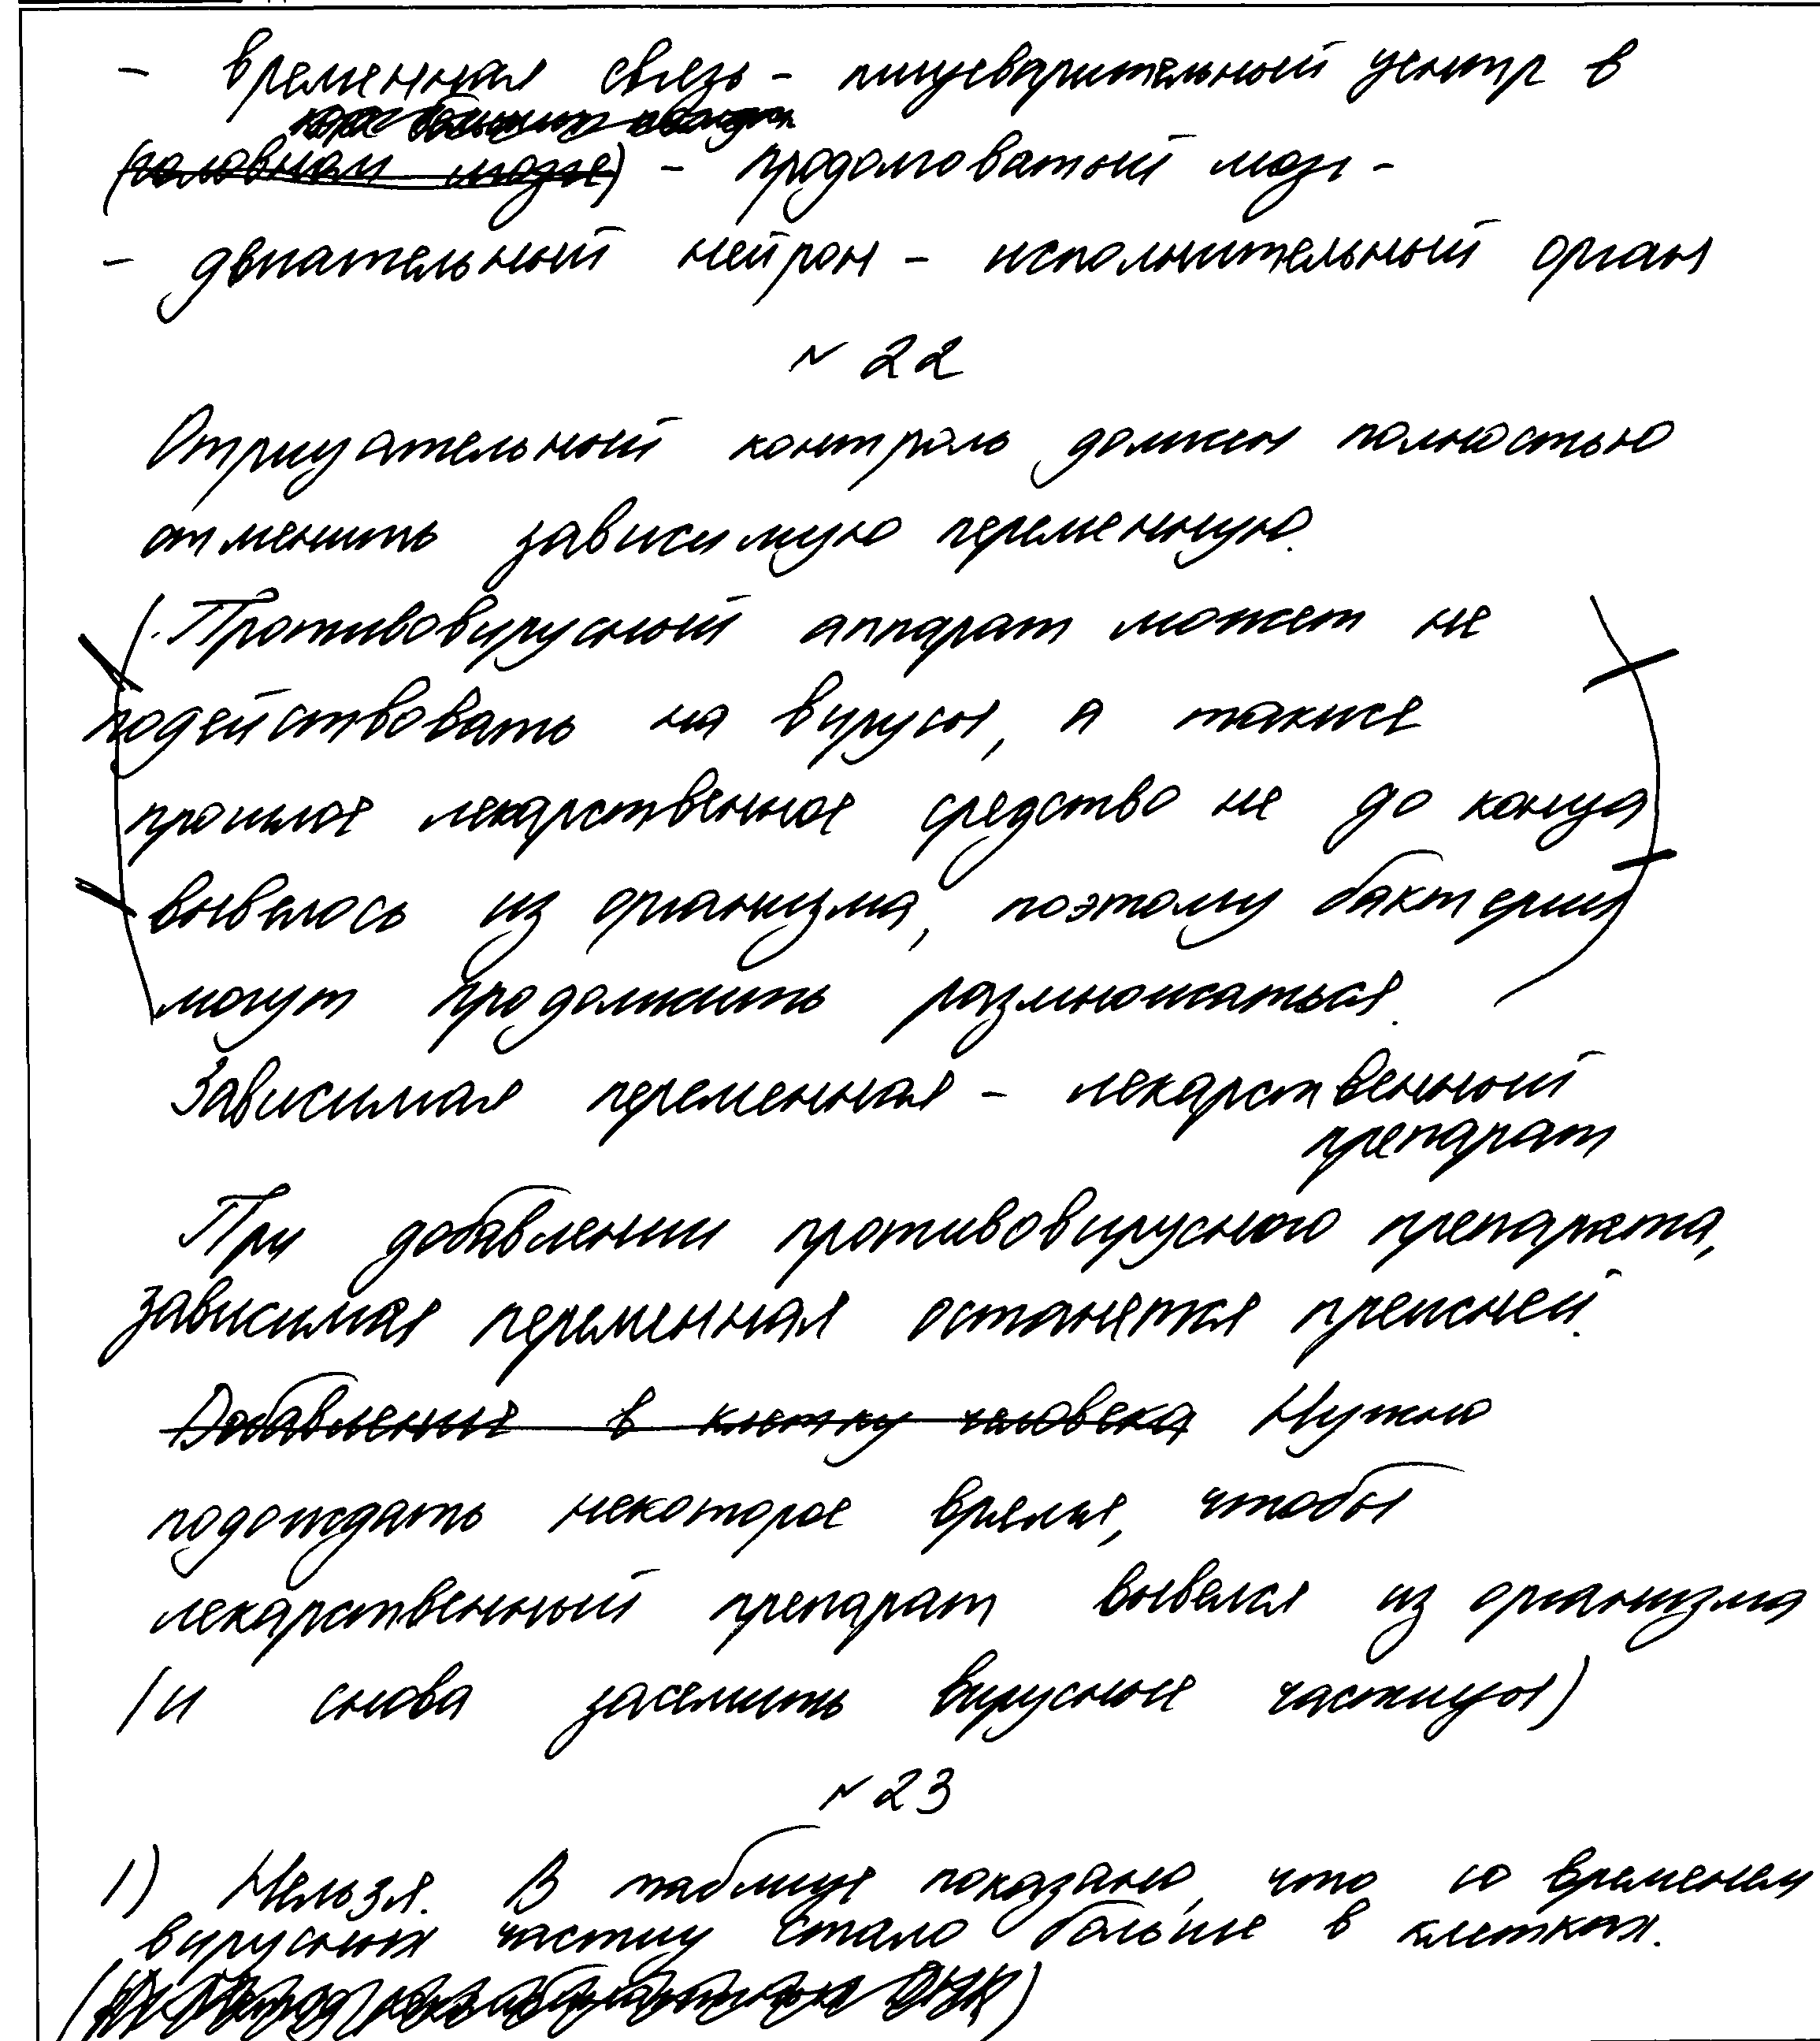 - временная связь - пищеварительный центр в
коре больших полушарий
(головном мозге) - продолговатый мозг -
- двигательный нейрон - исполнительный орган
№ 22
Отрицательный контроль должен полностью
отменить зависимую переменную.
(Противовирусный аппарат может не
подействовать на вирусы, а также
прошлое лекарственное средство не до конца
вывелось из организма, поэтому бактерии
могут продолжить размножаться.)
Зависимая переменная - лекарственный
препарат
При добавлении противовирусного препарата,
зависимая переменная останется прежней.
Добавление в клетку человека Нужно
подождать некоторое время, чтобы
лекарственный препарат вывелся из организма
(и снова заселить вирусные частицы)
№ 23
1) Нельзя. В таблице показано, что со временем
вирусных частиц стало больше в клетках.